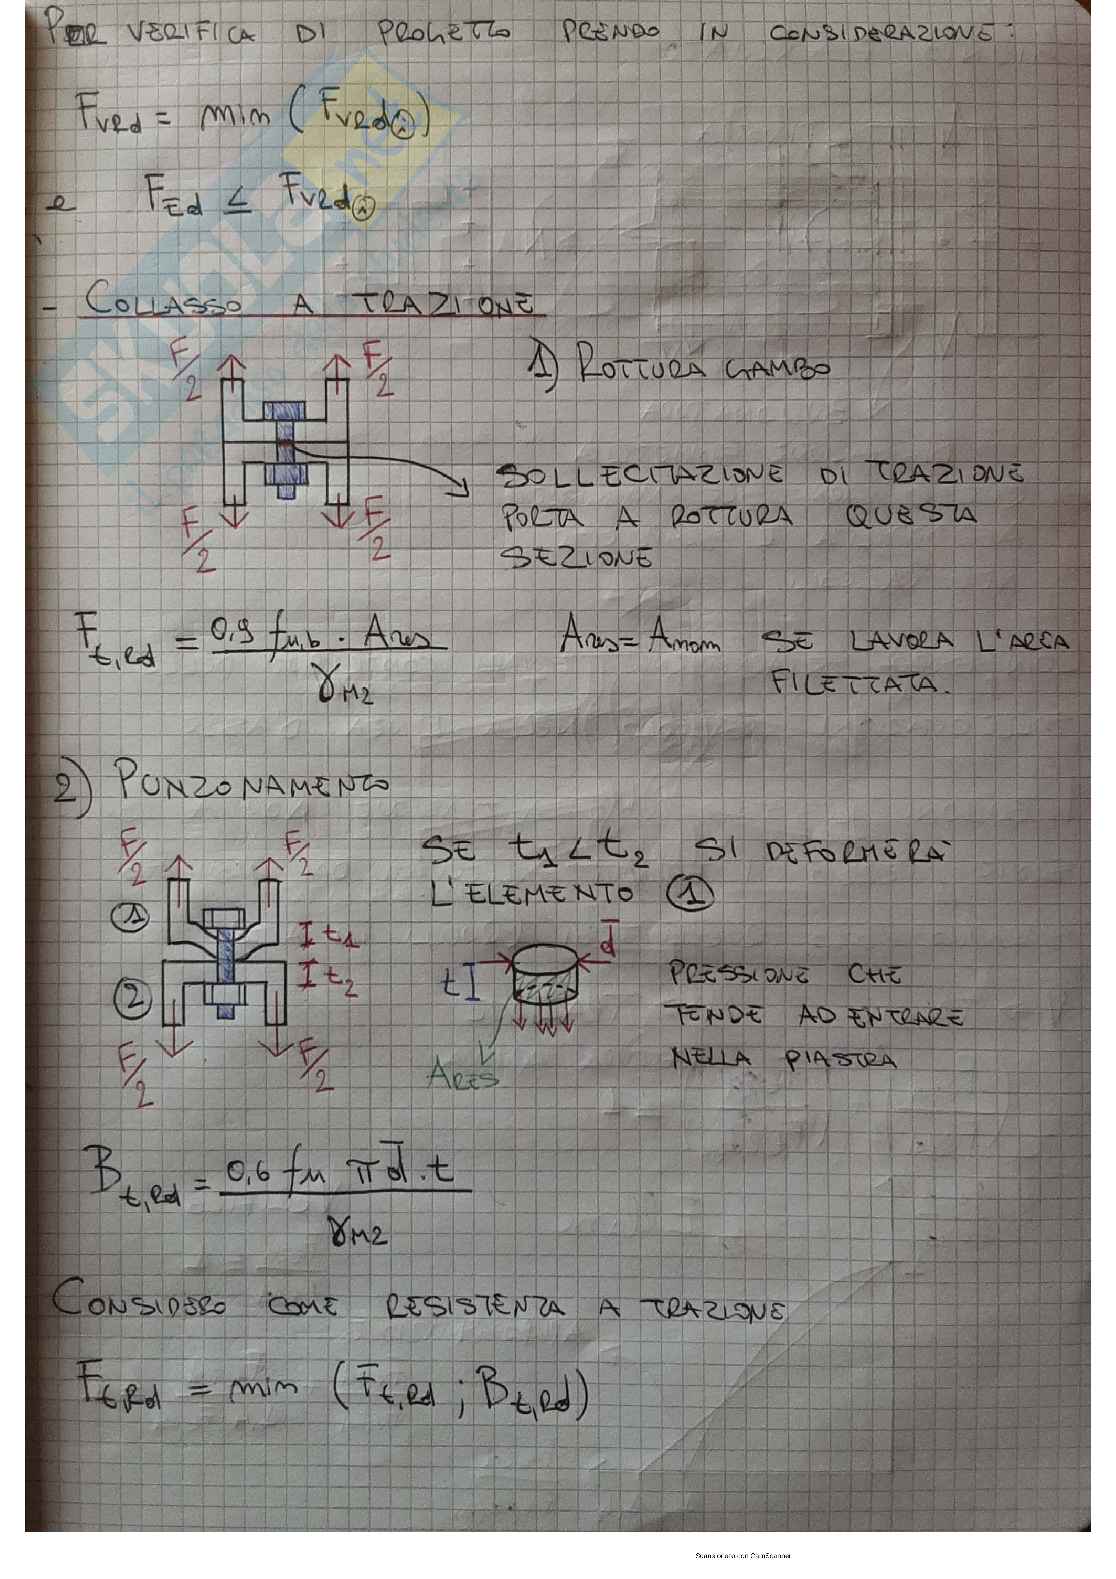 PER VERIFICA DI PROGETTO PRENDO IN CONSIDERAZIONE:
FVRd = min (FVRd i)
e FEd ≤ FVRd i
- COLLASSO A TRAZIONE
F/2 F/2 1) ROTTURA GAMBO
SOLLECITAZIONE DI TRAZIONE
PORTA A ROTTURA QUESTA
SEZIONE
F/2 F/2
Ft,Rd = 0,9 fu,b · Ares / γM2 Ares = Anom SE LAVORA L'AREA
FILETTATA.
2) PUNZONAMENTO
F/2 F/2 SE t1 < t2 SI DEFORMERÀ
L'ELEMENTO 1
1 t1 d̄
2 t2 t PRESSIONE CHE
TENDE AD ENTRARE
NELLA PIASTRA
F/2 F/2 ARES
Bt,Rd = 0,6 fu π d̄ · t / γM2
CONSIDERO COME RESISTENZA A TRAZIONE
Ft,Rd = min (Ft,Rd ; Bt,Rd)